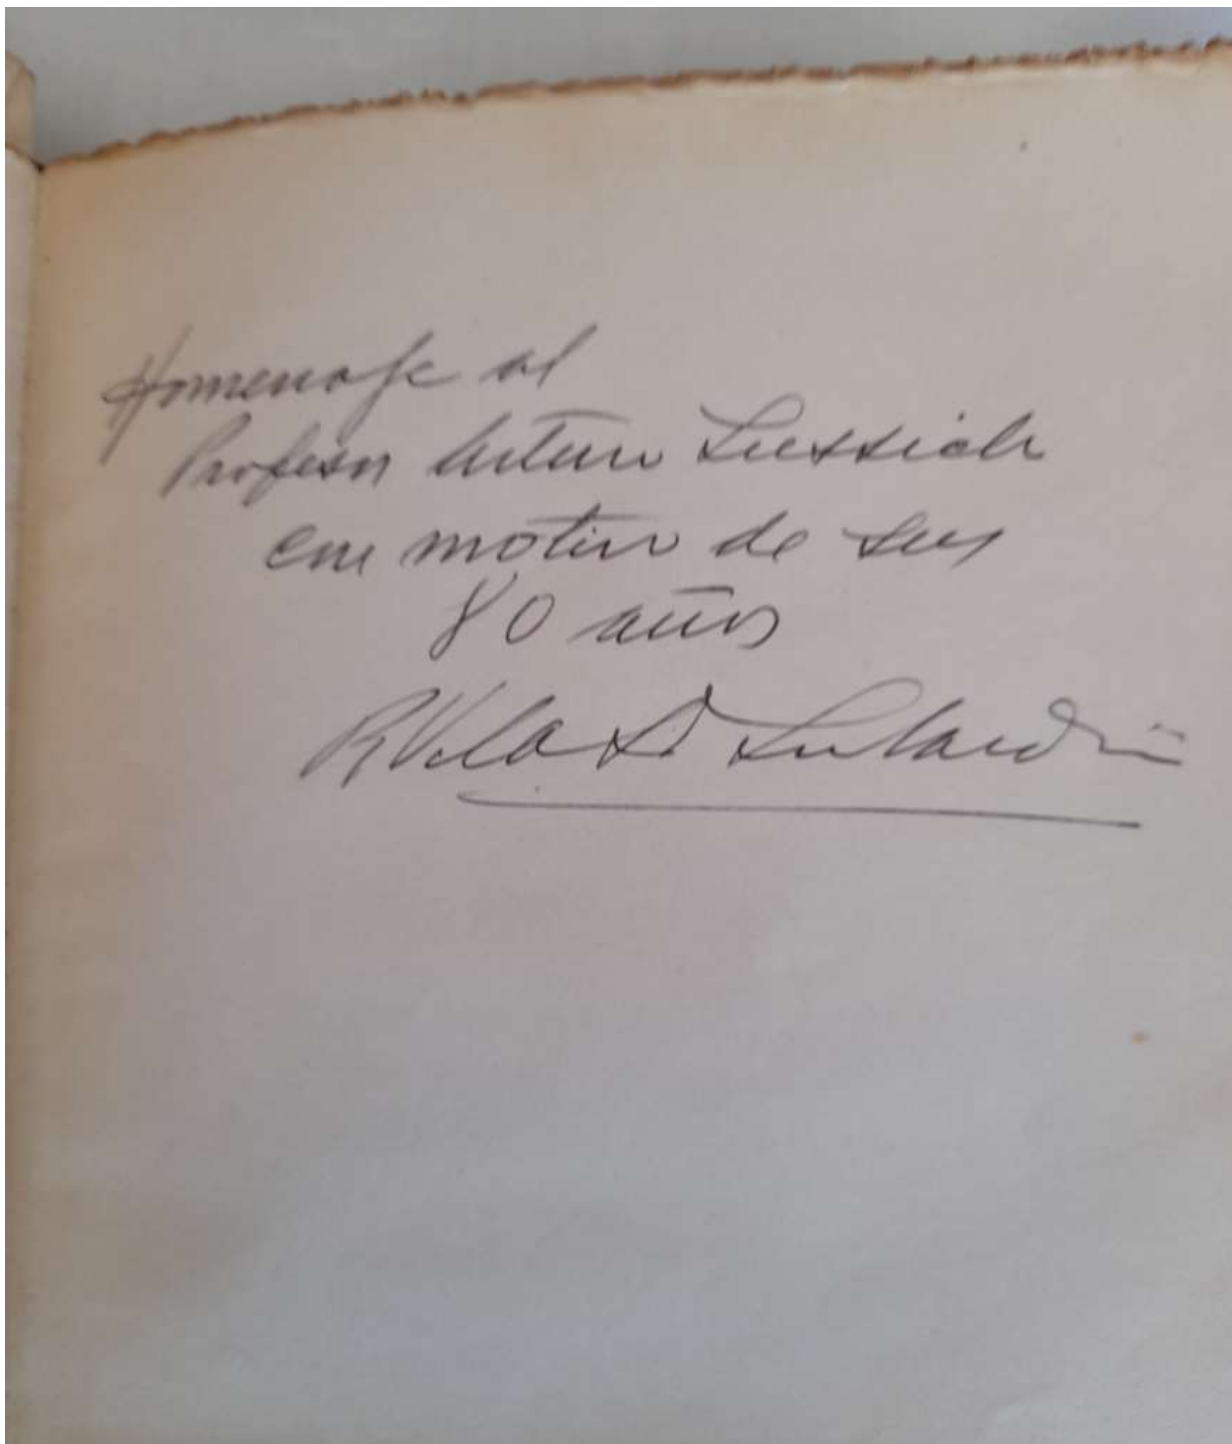 Homenaje al
Profesor Arturo Lussich
con motivo de sus
80 años